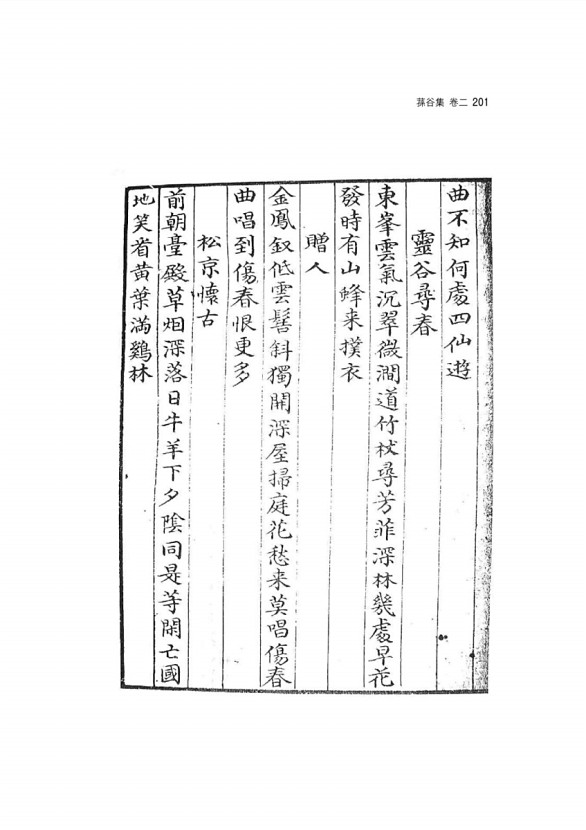 蓀谷集 卷二 201
曲不知何處四仙遊
靈谷尋春
東峯雲氣沉翠微澗道竹杖尋芳菲深林幾處早花
發時有山蜂来撲衣
贈人
金鳳釵低雲髻斜獨開深屋掃庭花愁来莫唱傷春
曲唱到傷春恨更多
松京懷古
前朝臺殿草烟深落日牛羊下夕陰同是等閑亡國
地笑看黄葉滿鷄林